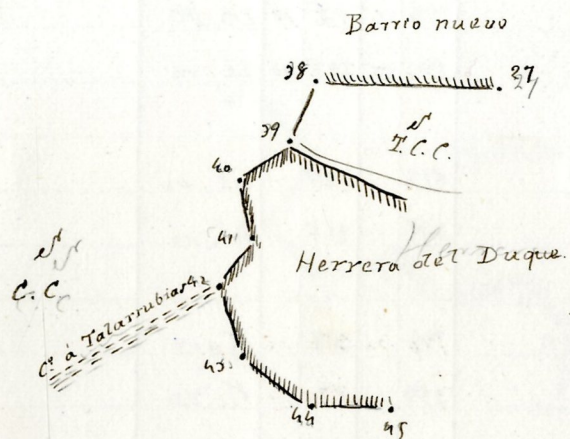 Barrio nuevo
38
37
39
T. C. C.
40
41
Herrera del Duque.
C. C.
Cº á Talarrubias
42
43
44
45